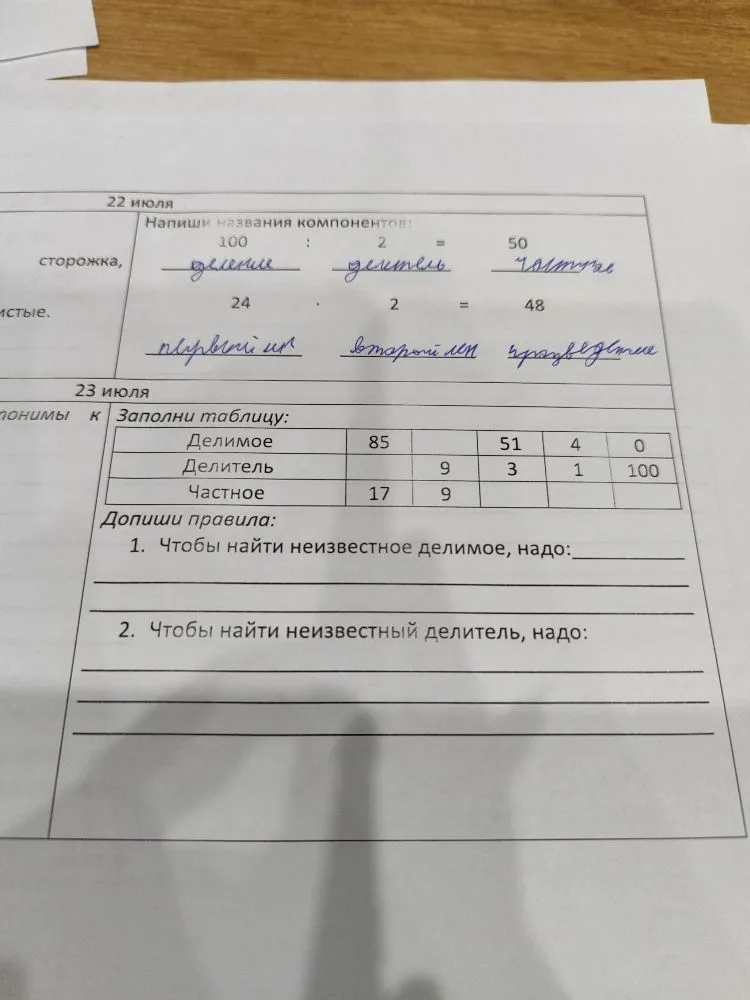 22 июля
Напиши названия компонентов:
100 : 2 = 50
сторожка,
деление делитель частное
24 · 2 = 48
истые.
первый второй произведение
23 июля
тонимы к
Заполни таблицу:
Делимое 85 51 4 0
Делитель 9 3 1 100
Частное 17 9
Допиши правила:
1. Чтобы найти неизвестное делимое, надо:
2. Чтобы найти неизвестный делитель, надо: